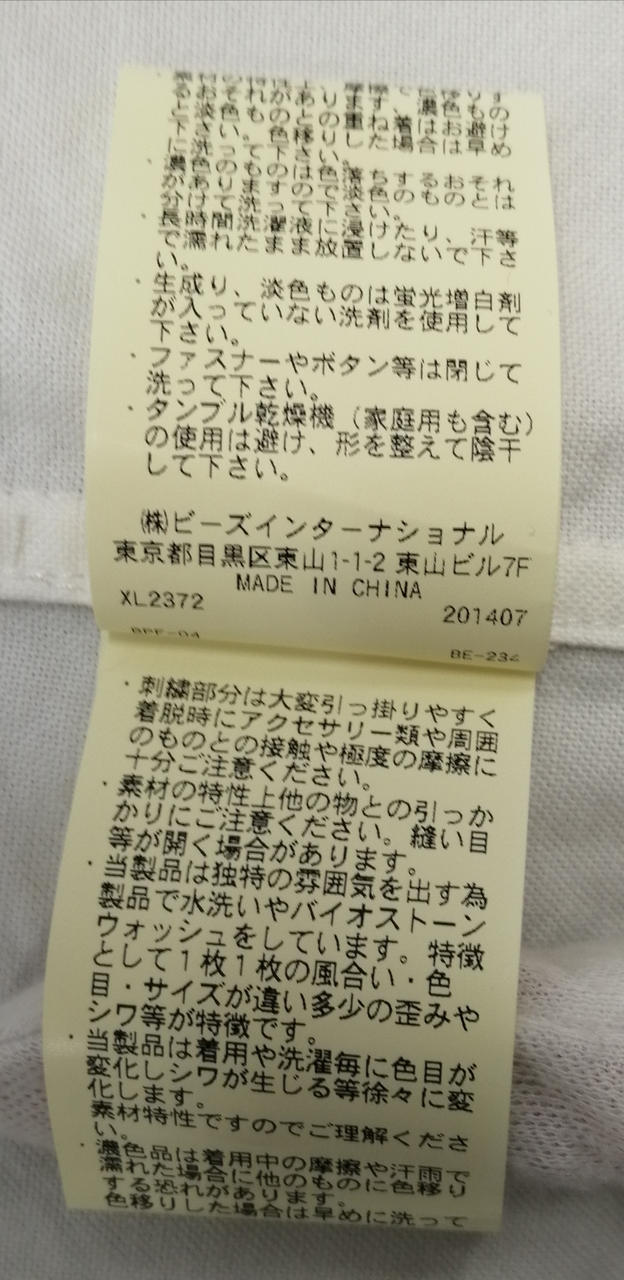 ・濃色のものは色落ちするおそれ
がありますので淡色のものとは
分けて洗って下さい。
・長時間洗濯液に浸けたり、汗等
で濡れたまま放置しないで下さ
い。
・生成り、淡色ものは蛍光増白剤
が入っていない洗剤を使用して
下さい。
・ファスナーやボタン等は閉じて
洗って下さい。
・タンブル乾燥機（家庭用も含む）
の使用は避け、形を整えて陰干
して下さい。
㈱ビーズインターナショナル
東京都目黒区東山1-1-2 東山ビル7F
MADE IN CHINA
XL2372 201407
BE-234
・刺繍部分は大変引っ掛りやすく
着脱時にアクセサリー類や周囲
のものとの接触や極度の摩擦に
十分ご注意ください。
・素材の特性上他の物との引っか
かりにご注意ください。縫い目
等が開く場合があります。
・当製品は独特の雰囲気を出す為
製品で水洗いやバイオストーン
ウォッシュをしています。特徴
として1枚1枚の風合い・色
目・サイズが違い多少の歪みや
シワ等が特徴です。
・当製品は着用や洗濯毎に色目が
変化しシワが生じる等徐々に変
化します。
素材特性ですのでご理解くださ
い。
・濃色品は着用中の摩擦や汗雨で
濡れた場合に他のものに色移り
する恐れがあります。
色移りした場合は早めに洗って